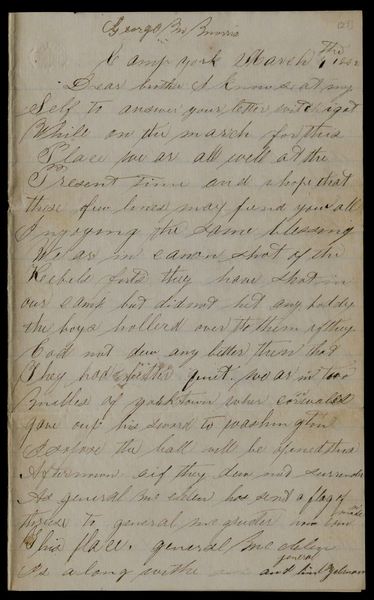 George M Morris
[21]
Camp york March Thd 1862
Dear brother I know set my
Self to answer your letter witch i got
While on the march for this
Place we ar all well at the
Present time and i hope that
these few lines may find you all
Injoying the same blessing
We ar in canon shot of the
Rebels forts they have shot in
our camp but did not hit any boddy
the boys hollerd over to them if they
Cod not dew any better then that
They had better quit. we ar in two
Miles of yorktown wher
gave oup his sword to washington
I the ball will be opend this
Afternoon if they dew not surrender
As general mc has send a flag of
to general
This place. general Mc
Is along with and general